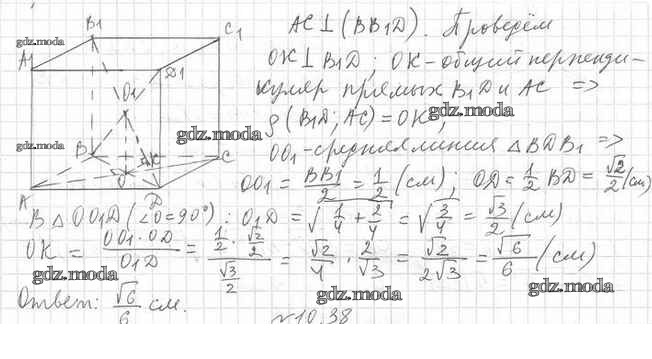 B₁
C₁
A₁
D₁
O₁
B
K
C
O
A
D
AC⊥(BB₁D). Проведём
OK⊥B₁D; OK-общий перпенди-
куляр прямых B₁D и AC =>
ρ(B₁D; AC)=OK;
OO₁-средняя линия △BDB₁ =>
OO₁ = BB₁/2 = 1/2 (см); OD = 1/2 BD = √2/2 (см)
В △OO₁D (∠O=90°): O₁D = √(1/4 + 2/4) = √(3/4) = √3/2 (см)
OK = OO₁·OD/O₁D = (1/2 · √2/2)/(√3/2) = √2/4 · 2/√3 = √2/2√3 = √6/6 (см)
Ответ: √6/6 см.
№10.38
gdz.moda
gdz.moda
gdz.moda
gdz.moda
gdz.moda
gdz.moda
gdz.moda